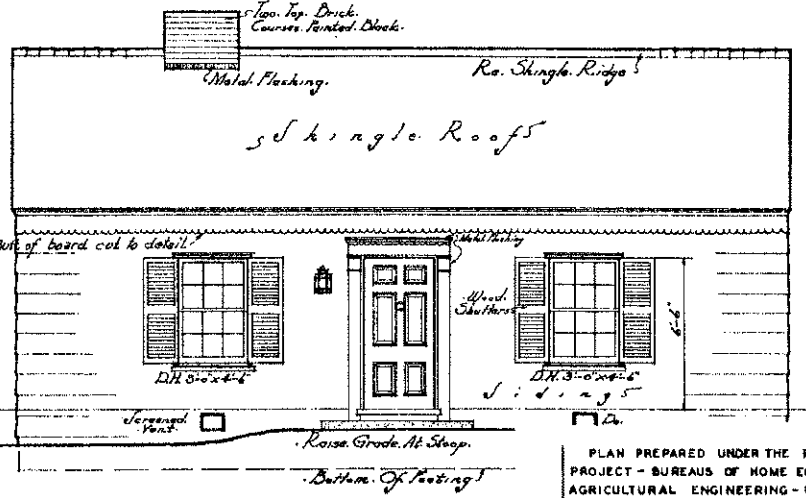 Two. Top. Brick.
Courses. Painted. Black.
Metal. Flashing.
Re. Shingle. Ridge
Shingle Roof
of board cut to detail.
Metal Flashing
Wood.
Shutters
6'-6"
D.H. 3'-0" x 4'-6"
D.H. 3'-0" x 4'-6"
Siding
Screened.
Vent.
Do.
Raise. Grade. At Stoop.
Bottom. Of Footing
PLAN PREPARED UNDER THE
PROJECT - BUREAUS OF HOME
AGRICULTURAL ENGINEERING -